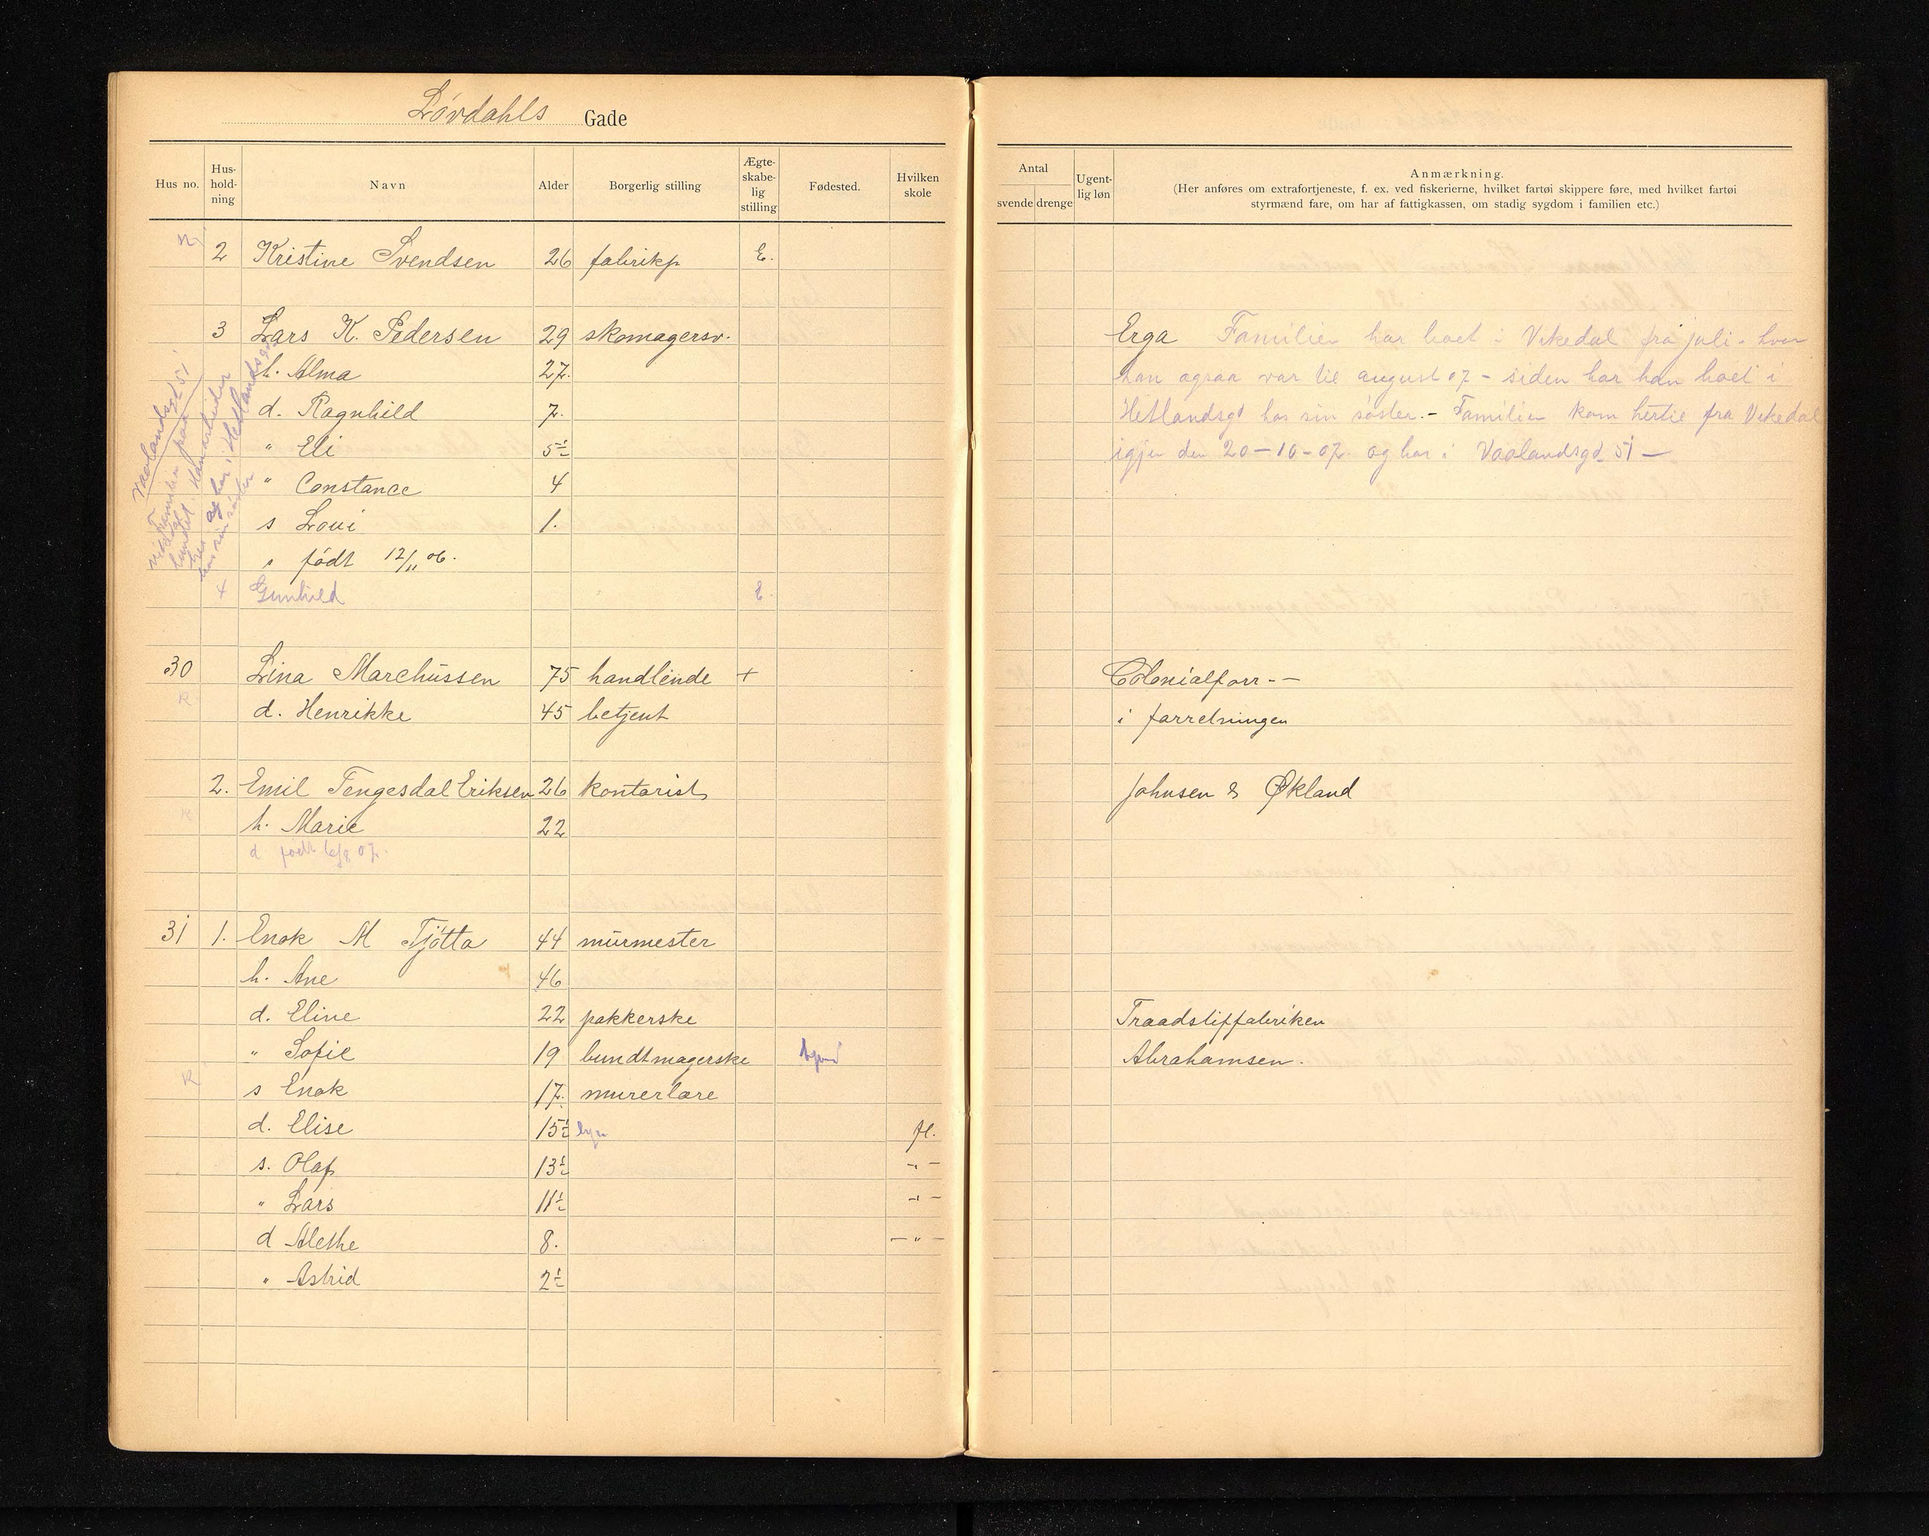 Lövdahls Gade
Hus no. Hus-hold-ning Navn Alder Borgerlig stilling Ægte-skabe-lig stilling Fødested. Hvilken skole
Antal svende drenge Ugent-lig løn Anmærkning.
(Her anføres om extrafortjeneste, f. ex. ved fiskerierne, hvilket fartøi skippere føre, med hvilket fartøi
styrmænd fare, om har af fattigkassen, om stadig sygdom i familien etc.)
2 Kristine Svendsen 26 fabrikp E.
3 Lars K. Pedersen 29 skomagersv. Erga Familien har boet i Vikedal fra juli - hvor
h. Alma 27. han ogsaa var til august 07 - siden har han boet i
d. Ragnhild 7. Hetlandsgd hos sin søster. - Familien kom hertil fra Vikedal
" Eli 5½ igjen den 20-10-07. og bor i Vaalandsgd 51 -
" Constance 4
s Loui 1.
s født 12/11 06.
+ Gunhild E.
Vaalandsgt 51
Familien paa
hos sin søster
30 Lina Marcussen 75 handlende + Colonialforr. -
R d. Henrikke 45 betjent i forretningen
2. Emil Tengesdal Eriksen 26 kontorist Johnsen & Økland
R h. Marie 22
d født 6/8 07.
31 1. Enok M Tjötta 44 murmester
h. Ane 46
d. Eline 22 pakkerske Traadstiffabriken
" Sofie 19 bundtmagerske Abrahamsen.
R s Enok 17. murerlære
d. Elise 15½ fl.
s. Olaf 13½ - " -
" Lars 11½ - " -
d Alethe 8. - " -
" Astrid 2½